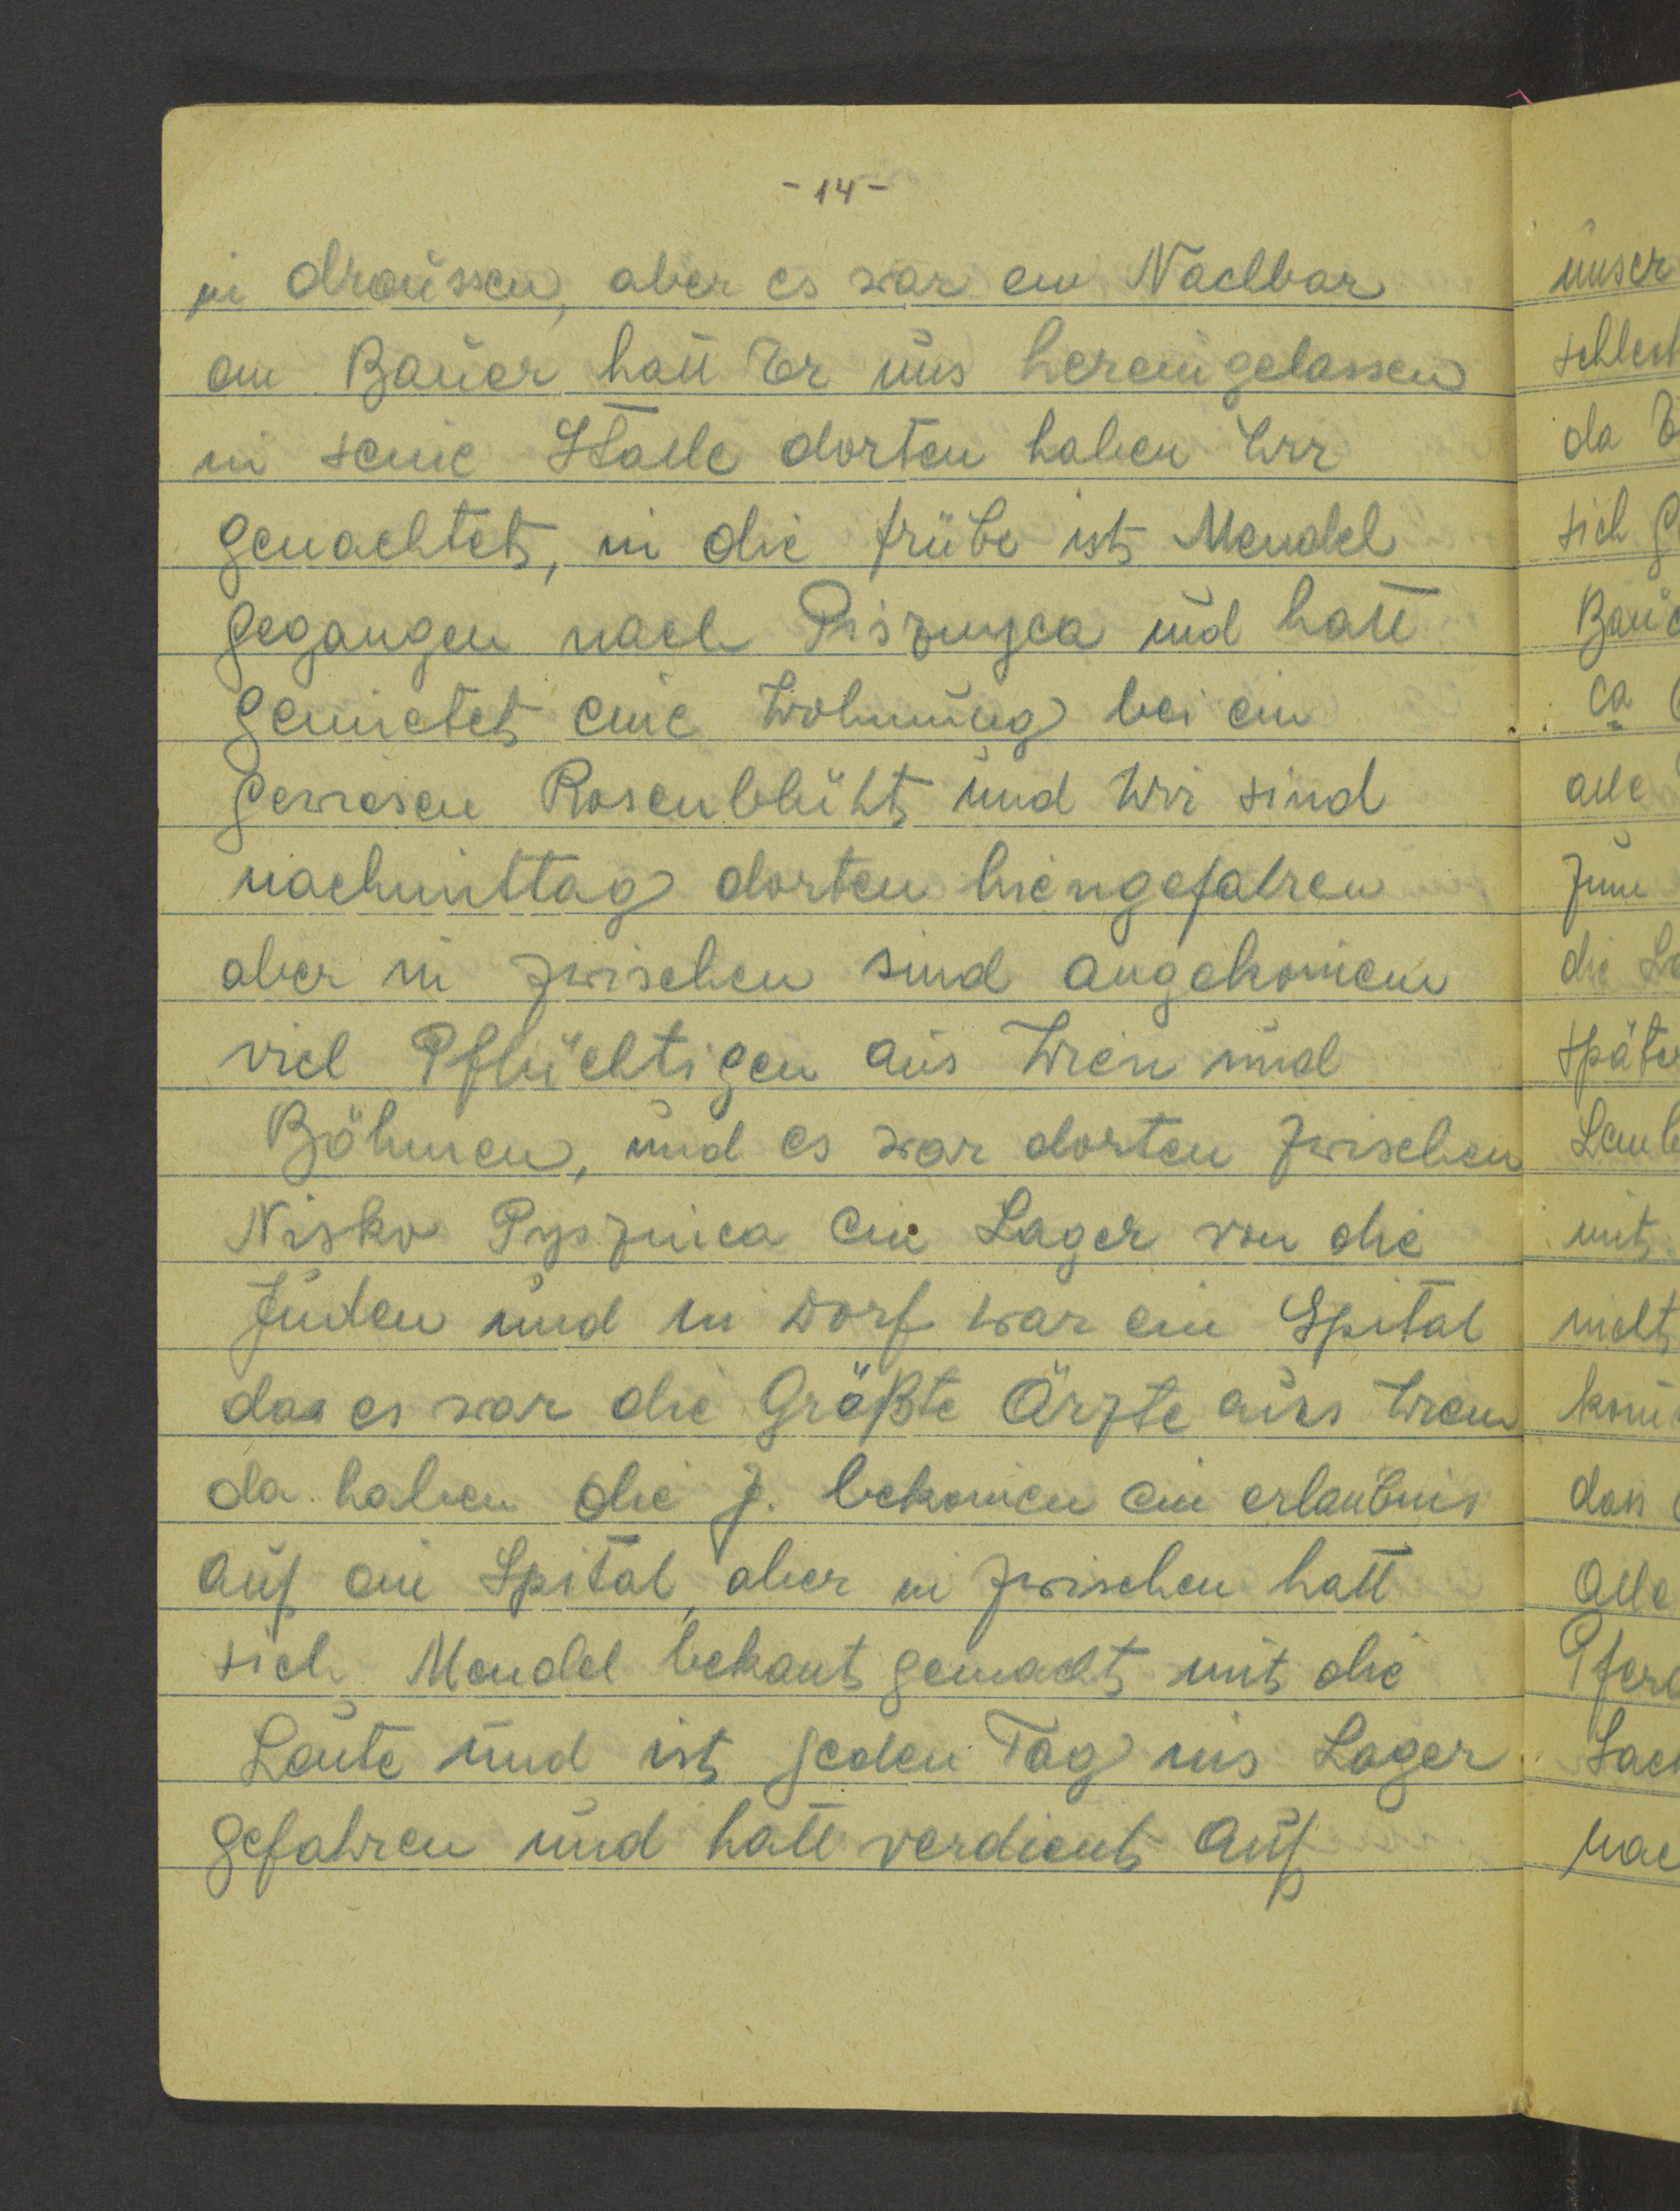 - 14 -
in draussen, aber es war ein Nachbar
ein Bauer hatt Er uns hereingelassen
in seine Stalle dorten haben Wir
genachtet, in die frühe ist Mendel
gegangen nach Pisznyca und hatt
gemietet eine Wohnung bei ein
gewiesen Rosenblüht und Wir sind
nachmittag dorten hiengefahren
aber in zwischen sind angekomen
viel Pflüchtigen aus Wien und
Böhmen, und es war dorten zwischen
Nisko Pysznica ein Lager von die
Juden und in Dorf war ein Spital
das es war die Größte Ärzte aus Wien
da haben die J. bekomen ein erlaubnis
auf ein Spital, aber in zwischen hatt
sich Mendel bekant gemacht mit die
Leute und ist jeden Tag ins Lager
gefahren und hatt verdient auf
unser
schlech
da
sich
Baue
ca
alle
zum
die La
späte
Lemb
mit
nicht
dass
alle
Pferd
Sach
nac